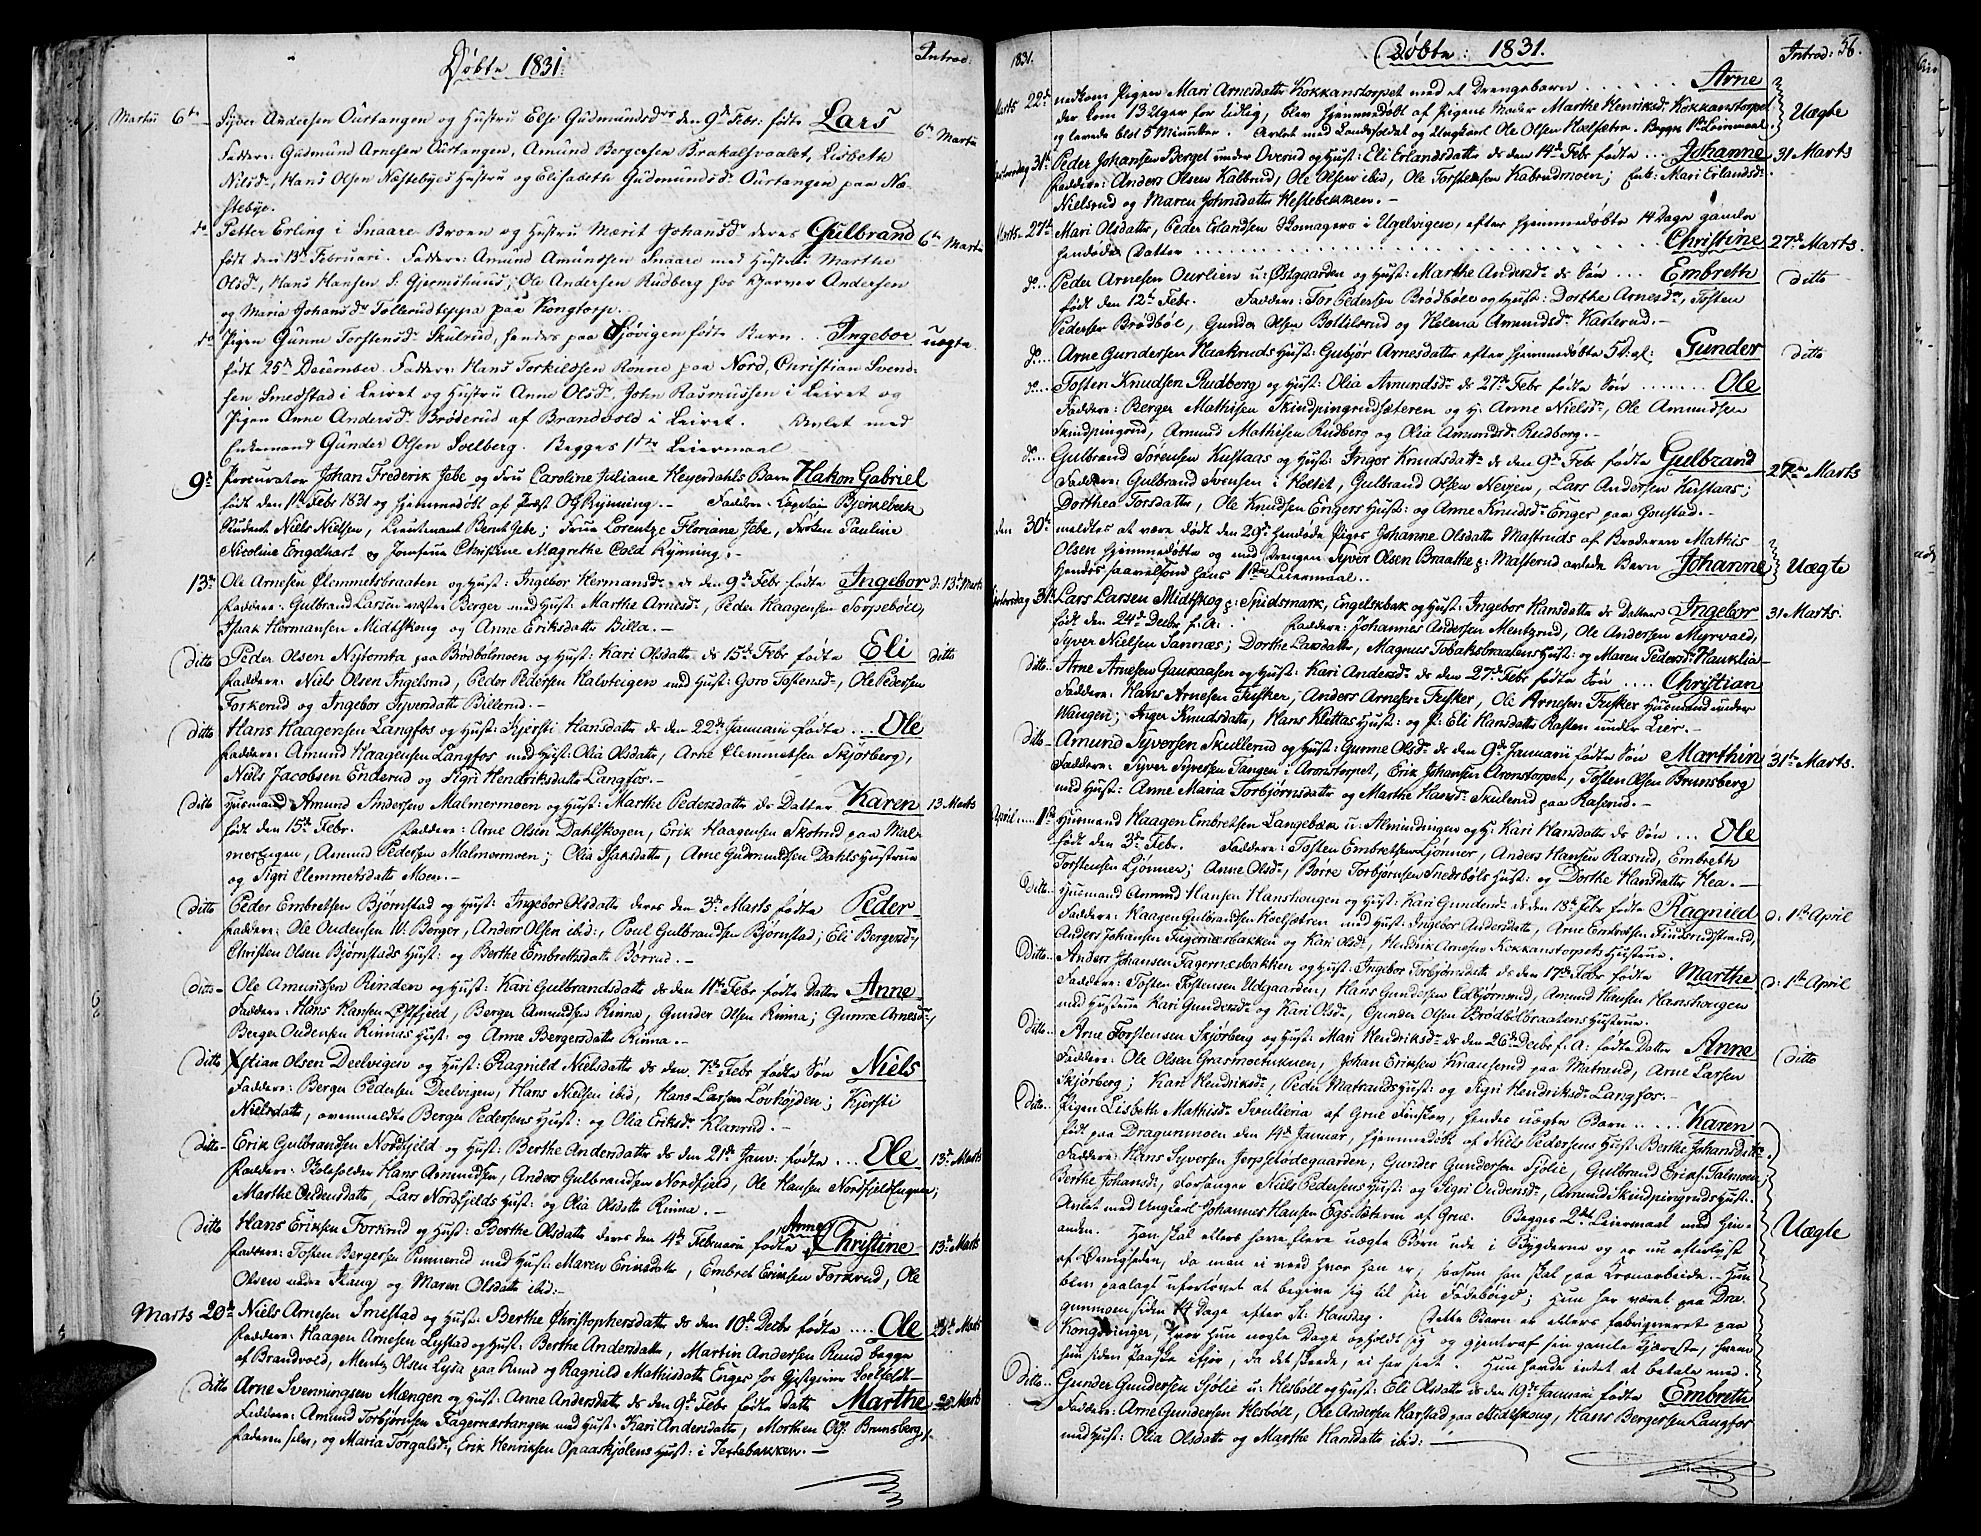 Døbte 1831. Introd.
Martii 6te Syver Andersen Ourtangen og Hustru Else Gudmundsdr den 9de Febr: fødte Lars 6te Martii
Faddere: Gudmund Arnesen Ourtangen, Amund Bergersen Brakalsvaalet, Lisbeth
Nilsdr, Hans Olsen Næstebyes Hustru og Elisabeth Gudmundsdr Ourtangen paa Næ-
stebye.
do Petter Erling i Snaare Broen og Hustru Marit Johansdr deres Gulbrand 6te Martii
født den 13de Februari. Faddere: Amund Amundsen Snaare med Hustru Marthe
Olsdr, Hans Hansen S: Gjemshuus, Ole Andersen Rudberg hos Kjerner Andersen
og Maria Johansdr Tollerudteppa paa Kongtorp.
do Pigen Gunne Torstensdr Skulrud, hendes paa Sjøvigen fødte Barn .. Ingebor uægte
født 25de December. Faddere: Hans Torkildsen Rønne paa Nord, Christian Svend-
sen Smedstad i Leiret og Hustru Anne Olsdr, John Rasmussen i Leiret og
Pigen Anne Andersdr Brøderud af Brandvold i Leiret. Avlet med
Enkemand Gunder Olsen Soelberg. Begges 1ste Leiermaal
9de Procurator Johan Frederik Jebe og Fru Caroline Juliane Heyerdahls Barn Hakon Gabriel
født den 11te Febr 1831 og hjemmedøbt af Præst OG Rynning. — Faddere: Capitain Bjerkebeck
Student Niels Nielsen, Lieutnant Bernt Jebe; Frue Lorentze Floriane Jebe, Frøken Pauline
Nicoline Engelhart og Jomfrue Christine Magrethe Cold Rynning.
13de Ole Arnesen Clemmetsbraaten og Hust: Ingebor Hermansdr ds den 9de Febr fødte Ingebor d: 13de Marts
Faddere: Gulbrand Larsen næstre Berger med Hust: Marthe Arnesdr, Peder Haagensen Torpeböle,
Isaak Hermansen Midtskoug og Anne Eriksdatte Billa. —
Ditto Peder Olsen Nytomta paa Brödbölmoen og Hust: Kari Olsdatte ds 15de Febr fødte Eli ditto
Faddere: Niels Olsen Ingelsrud, Peder Pedersen Halvteigen med Hust: Goro Tostensdr, Ole Pedersen
Forkerud og Ingebor Syversdatte Billerud. —
Ditto Hans Haagensen Langfos og Hust: Kjersti Hansdatte ds den 22de Januarii fødte ... Ole
Faddere: Amund Haagensen Langfos med Hust: Olia Olsdatte, Arne Clemmetsen Skjörberg,
Niels Jacobsen Enderud og Sigri Hendriksdatte Langfos. —
ditto Husmand Amund Andersen Malmermoen og Hust: Marthe Pedersdatte ds Datter Karen 13 Marts
født den 15de Febr. Faddere: Arne Olsen Dahlskogen, Erik Haagensen Skotrud paa Mal-
merengen, Amund Pedersen Malmermoen; Olia Isaksdatte, Arne Gudmundsen Dahls Hustrue
og Sigri Clemmetsdatte Moen. —
ditto Peder Embretsen Bjørnstad og Hust: Ingebor Olsdatte deres den 3de Marts fødte Peder
Faddere: Ole Oudensen V: Berger, Anders Olsen ibid:, Poul Gulbrandsen Bjørnstad; Eli Bergersdr,
Christen Olsen Bjørnstads Hust: og Berthe Embretsdatte Börrud. —
ditto Ole Amundsen Rinden og Hust: Kari Gulbrandsdatte ds den 11te Febr fødte Datter Anne
Faddere: Hans Hansen Østfjeld, Berger Amundsen Rinna, Gunder Olsen Rinna; Gunne Arnesdr,
Berger Oudensen Rinnas Hust: og Anne Bergersdatte Rinna. —
ditto Xstian Olsen Deelvigen og Hust: Ragnild Nielsdatte ds den 7de Febr fødte Søn Niels
Faddere: Berger Pedersen Deelvigen, Hans Nielsen ibid, Hans Larsen Lövhöjden; Kjersti
Nielsdatte, ovenmeldte Berger Pedersens Hust: og Olia Eriksdr Klanrud. —
ditto Erik Gulbrandsen Nordfjeld og Hust: Berthe Andersdatte ds den 21de Janv: fødte ... Ole 13de Marts
Faddere: Skoleholder Hans Amundsen, Anders Gulbrandsen Nordfjeld, Ole Hansen Nordfjeldeugnen;
Marthe Oudensdatte, Lars Nordfjelds Hust: og Olia Olsdatte Rinna. —
ditto Hans Eriksen Forkrud og Hust: Berthe Olsdatte deres den 4de Februarii fødte Anne Christine 13de Marts
Faddere: Tosten Bergersen Punnerud med Hust: Maren Eriksdatte, Embret Eriksen Forkrud, Ole
Olsen nedre Skoug og Maren Olsdatte ibid: —
Marts 20de Niels Arnesen Smestad og Hust: Berthe Christophersdatte ds den 10de Decbr fødte .... Ole 20de Marts
Faddere: Haagen Arnesen Lystad og Hust: Berthe Andersdatte, Martin Andersen Rund begge
af Brandvold, Mentz Olsen Lysa paa Rund og Ragnild Mathisdatte Enger hos Gjestgiver Soelfeldt —
Ditto Arne Svenningsen Mængen og Hust: Anne Andersdatte ds den 9de Febr fødte Datt Marthe 20 Marts
Faddere: Amund Torbjörnsen Fagernæstangen med Hust: Kari Andersdatte, Morthen Ols: Brunsberg,
Faderen selv, og Maria Torgalsdr, Erik Henriksen Opaaskjölens Hust: i Tertebakken. —
1831. Døbte: 1831. Introd: 56.
Marts 22de nedkom Pigen Mari Arnesdatte Kokkanstorpet med et Drengebarn ...... Arne
der kom 13 Uger for tidlig, blev hjemmedøbt af Pigens Moder Marthe Henriksdr Kokkanstorpet Uægte
og levede blot 5 Minuter. Avlet med Landsoldat og Ungkarl Ole Olsen Hoelsætre. Begges 1ste Leiermaal.
Skjertorsdag 31te Peder Johansen Berget under Overud og Hust: Eli Erlandsdatte ds den 14de Febr fødte ... Johanne 31 Marts
Faddere: Anders Olsen Kalbrud, Ole Olsen ibid, Ole Torstensen Kabrudmoen; Enk: Mari Erlandsdr
Nielsrud og Maren Johnsdatte Hestebekken. —
Marts 27de Mari Olsdatte, Peder Erlandsen Skomagers i Ugelvigen, efter hjemmedøbte 14 Dage gamle
hendøde Datter ...... Christine 27de Marts.
do... Peder Arnesen Ourlien u: Østgaarden og Hust: Marthe Andersdr ds Søn ... Embreth ditto
født den 12te Febr. Faddere: Tor Pedersen Brödböle og Hust: Dorthe Arnesdr, Tosten
Pedersen Brödböl, Gunder Olsen Bottilsrud og Helena Amundsdr Karterud. —
do... Arne Gundersen Haakruds Hust: Gubjør Arnesdatte efter hjemmedøbte 5 D. gl: Gunder ditto
do... Tosten Knudsen Rudberg og Hust: Olia Amundsdr ds 27de Febr fødte Søn ..... Ole
Faddere: Berger Mathisen Skindpingrudsæteren og H: Anne Nielsdr, Ole Amundsen
Skindpingrud, Amund Mathisen Rudberg og Olia Amundsdr Rudberg. —
do... Gulbrand Sørensen Kustaas og Hust: Inger Knudsdatte ds den 9de Febr fødte Gulbrand 27de Marts
Faddere: Gulbrand Svensen i Holtet, Gulbrand Olsen Neijen, Lars Andersen Kustaas;
Dorthea Torsdatte, Ole Knudsen Engers Hust: og Anne Knudsdr Enger paa Gonstad. —
den 30te meldtes at være død den 29de hendøde Piges Johanne Olsdatte Mastruds af Broderen Mathis
Olsen hjemmedøbte og med Drengen Syver Olsen Braathe p: Masterud avlede Barn Johanne Uægte
Hendes saavelsom hans 1ste Leiermaal..
Skjertorsdag 31te Lars Larsen Midtskog p: Spidsmark, Engelskbak og Hust: Ingebor Hansdatte ds Datter Ingebor 31 Marts.
født den 24de Decbr f: A: Faddere: Johannes Andersen Mentzrud, Ole Andersen Myrvald,
Syver Nielsen Sannæs; Dorthe Larsdatte, Magnus Tobaksbraatens Hust: og Maren Pedersdr Hauklia —
ditto. Arne Arnesen Gaukaasen og Hust: Kari Andersdr ds den 27de Febr fødte Søn .... Christian
Faddere: Hans Arnesen Fusker, Anders Arnesen Fusker, Ole Arnesen Fusker Husmand under
Vangen; Inger Knudsdatte, Hans Klettas Hust: og P: Eli Hansdatte Rasten under Lier. —
ditto — Amund Syversen Skullerud og Hust: Gunne Olsdr ds den 9de Januarii fødte Søn Marthin 31te Marts.
Faddere: Syver Syversen Tangen i Aronstorpet, Erik Johansen Aronstorpet, Tosten Olsen Brunsberg
med Hust: Anne Maria Torbjørnsdatte og Marthe Hansdr Skulerud paa Raserud. —
April .... 1ste Husmand Haagen Embretsen Langebæk u: Almindingen og H: Kari Hansdatte ds Søn ... Ole
født den 3de Febr. Faddere: Tosten Embretsen Ljönner, Anders Hansen Rasrud, Embreth
Torstensen Ljönner; Anne Olsdr, Børre Torbjørnsen Snedsböls Hust: og Dorthe Hansdatte Hea. —
Ditto.. Husmand Amund Hansen Hanshougen og Hust: Kari Gundersdr ds den 18de Febr fødte Ragnild d: 1ste April
Faddere: Haagen Gulbrandsen Hoelsætren med Hust: Ingebor Andersdatte, Arne Embretsen Findsrudstrand,
Anders Johansen Fagernæsbakken og Kari Olsdr, Hendrik Arnesen Kokkanstorpets Hustrue.
Ditto.. Anders Johansen Fagernesbakken og Hust: Ingebor Torbjörnsdatte ds den 17de Febr fødte Marthe d: 1ste April
Faddere: Tosten Tostensen Udgaarden, Hans Gundersen Edbjörnrud, Amund Hansen Hanshougen
med Hustrue Kari Gundersdr og Kari Olsdr, Gunder Olsen Brödbölbraatens Hustrue.
Ditto.. Arne Torstensen Skjörberg og Hust: Mari Hendriksdr ds den 26de Decbr f: A: fødte Datter Anne ditto
Faddere: Ole Olsen Grasmoetuknen, Johan Eriksen Knauserud paa Matrand, Arne Larsen
Skjörberg; Kari Hendriksdr, Peder Matrands Hust: og Sigri Hendriksdr Langfos. —
Ditto.. Pigen Lisbeth Mathisdr Skulleria af Grue Finskov, hendes uægte Barn ..... Karen
født paa Dragunmoen den 14de Januar, hjemmedøbt af Niels Pedersens Hust: Berthe Johansdatte
Faddere: Hans Syversen Jerpsetødegaarden, Gunder Gundersen Sjölie, Gulbrand Eriks: Talmoen;
Berthe Johansdr, Forsanger Niels Pedersens Hust: og Sigri Oudensdr, Amund Skindpingruds Hust:
Avlet med Ungkarl Johannes Hansen Egssæteren af Grue. Begges 2det Leiermaal med hin-
anden. Han skal ellers have flere uægte Børn ude i Bygderne og er nu efterlyst Uægte
af Øvrigheden, da man ei veed hvor han er, saasom han skal paa Kronarbeide. — Hun
blev paalagt ufortøvet at begive sig til sin Fødebøigd; hun har været paa Dra-
gunmoen siden 14 Dage efter St: Hansdag. Dette Barn er ellers fabriqueret paa
Kongsvinger, hvor hun nogle Dage opholdt sig og gjentraf sin gamle Kjæreste, hvem
hun siden Paaske ifjor, da det skeede, ei har seet. Hun havde intet at betale med.
Ditto.. Gunder Gundersen Sjölie u: Hesböll og Hust: Eli Olsdatte ds den 19de Januarii fødte Embreth
Faddere: Arne Gundersen Hesböll, Ole Andersen Harstad paa Midtskoug, Hans Bergersen Langfos
med Hust: Olia Olsdatte og Marthe Hansdatte ibid: —